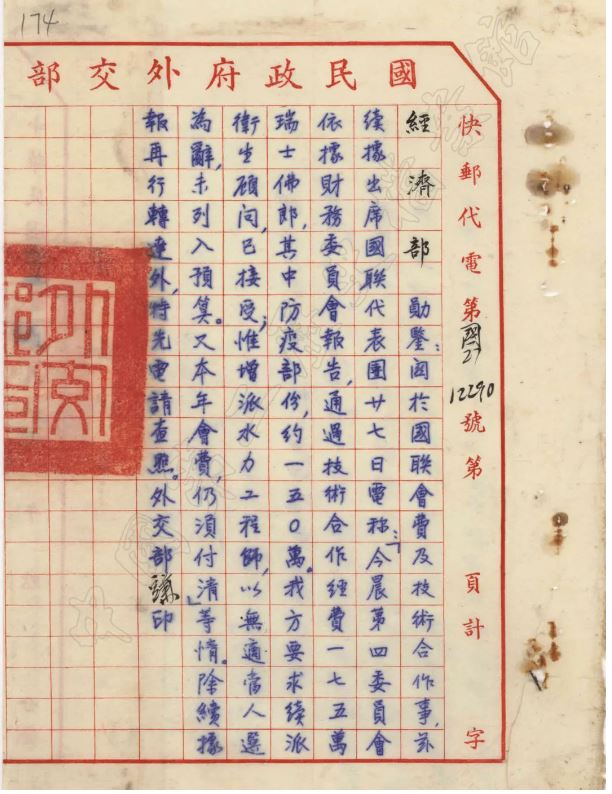 174
國民政府外交部
快郵代電第國27 12290號第 頁計 字
經濟部 勛鑒:關於國聯會費及技術合作事,茲
續據出席國聯代表團廿七日電稱:「今晨第四委員會
依據財務委員會報告,通過技術合作經費一七五萬
瑞士佛郎,其中防疫部份,約一五〇萬。我方要求續派
衛生顧問,已接受;惟增派水力工程師,以無適當人選
為辭,未列入預算。又本年會費,仍須付清」等情。除續據
報再行轉達外,特先電請查照。外交部 印